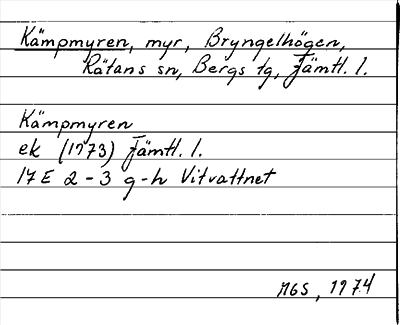 Kämpmyren, myr, Bryngelhögen,
Rätans sn, Bergs tg, Jämtl. l.
Kämpmyren
ek (1973) Jämtl. l.
17E 2-3 g-h Vitvattnet
MGS, 1974